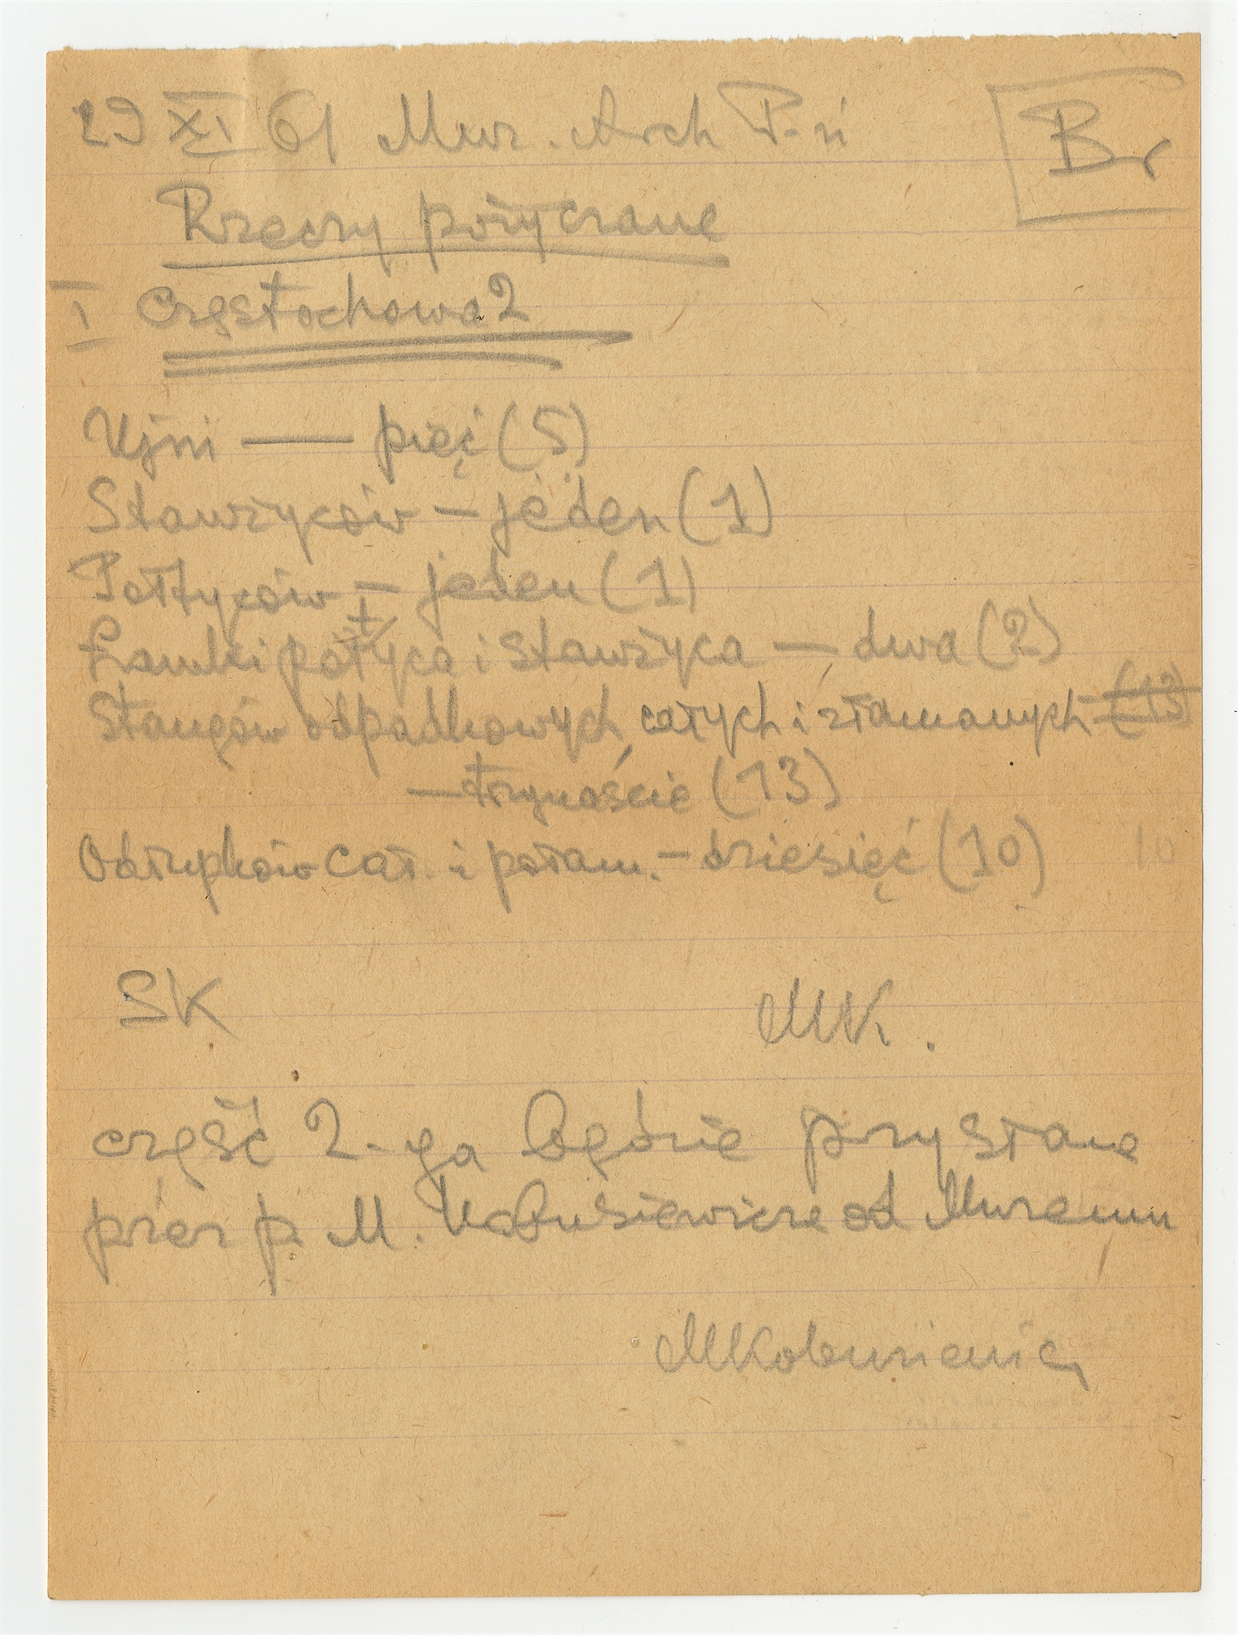 29 XI 61 Muz. Arch P-ń
Br
Rzeczy pożyczane
I Częstochowa 2
Ujni — pięć (5)
Stawżyców - jeden (1)
Połtyców - jeden (1)
połtyca i stawżyca - dwa (2)
Stangów odpadkowych, całych i złamanych - (13)
- trzynaście (13)
Odłupków cał. i połam. - dziesięć (10) 10
SK MK.
część 2-ga będzie przysłane
przez p. M. Kobusiewicza od Muzeum
MKobusiewicz